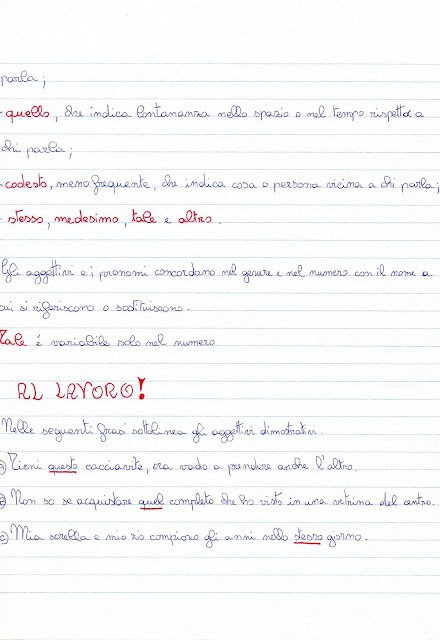 parla;
- quello, che indica lontananza nello spazio o nel tempo rispetto a
chi parla;
- codesto, meno frequente, che indica cosa o persona vicina a chi parla;
- stesso, medesimo, tale e altro.
Gli aggettivi e i pronomi concordano nel genere e nel numero con il nome a
cui si riferiscono o sostituiscono.
Tale é variabile solo nel numero
AL LAVORO!
Nelle seguenti frasi sottolinea gli aggettivi dimostrativi.
a) Tieni questo cacciavite, ora vado a prendere anche l'altro.
b) Non so se acquistare quel completo che ho visto in una vetrina del centro.
c) Mia sorella e mio zio compiono gli anni nello stesso giorno.